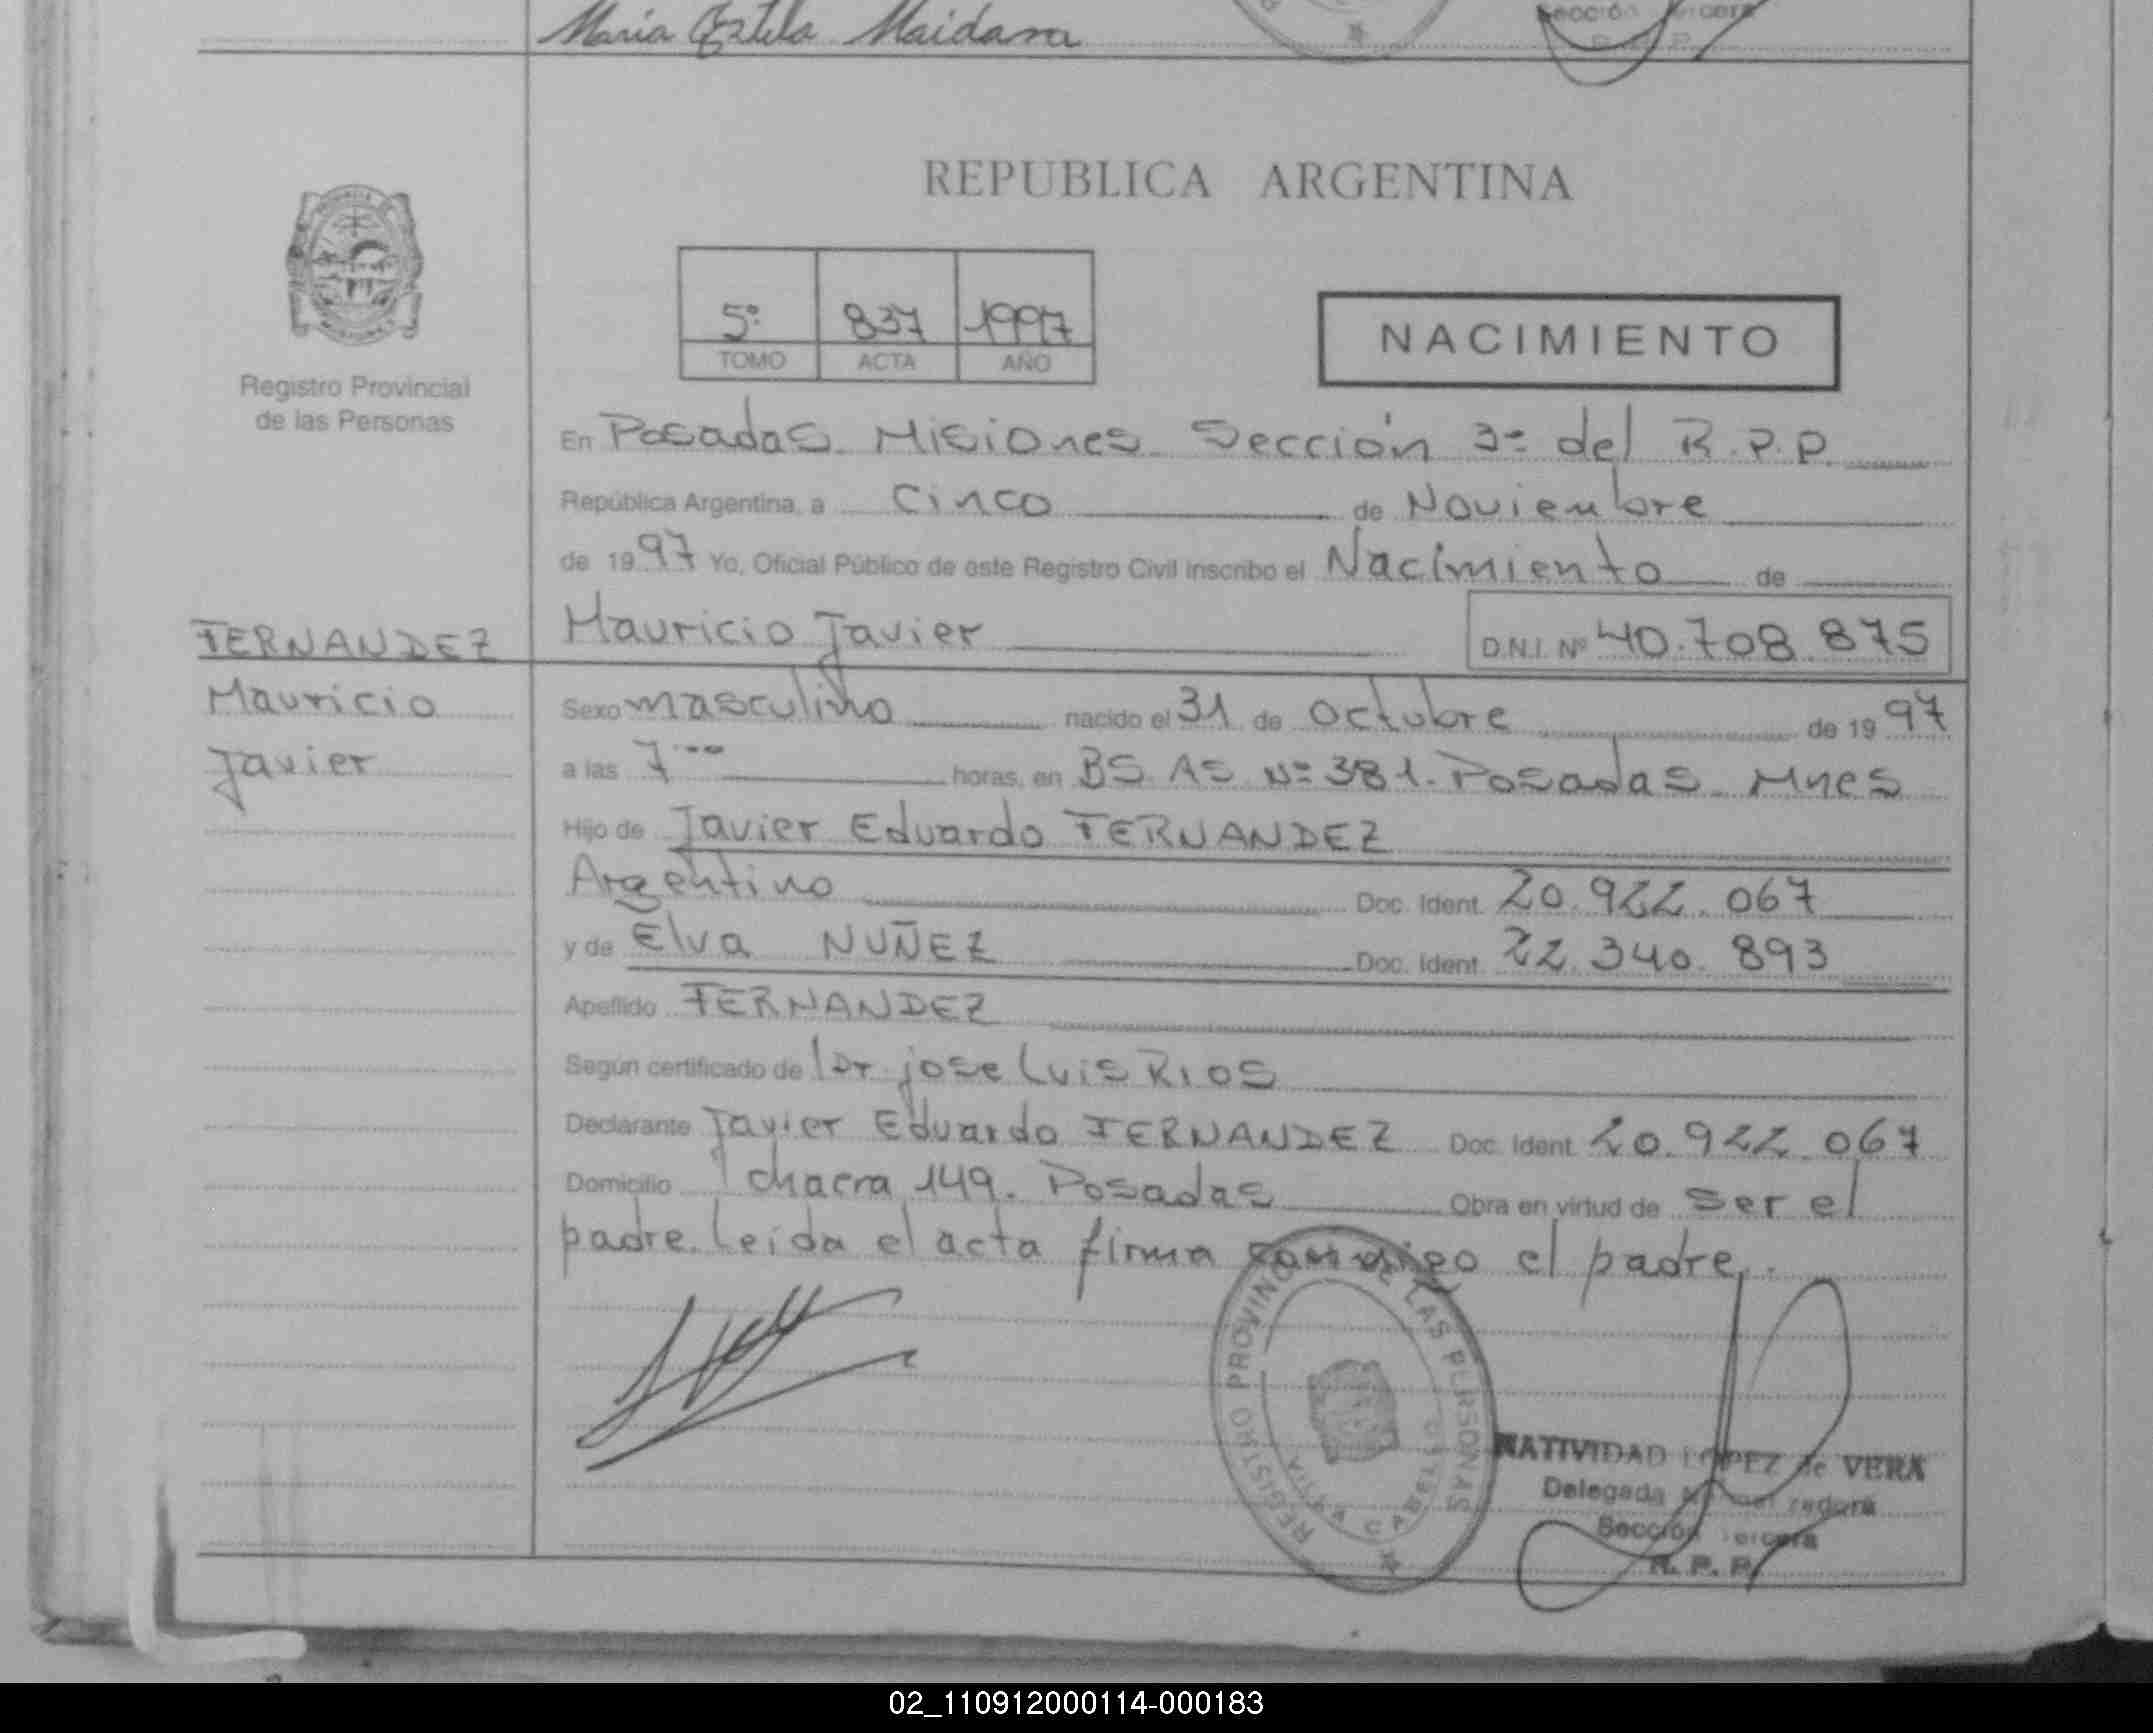 Maria Estela Maidana
Sección Tercera
R. P. P.
REPUBLICA ARGENTINA
5º 837 1997
TOMO ACTA AÑO
NACIMIENTO
Registro Provincial
de las Personas
En Posadas Misiones Sección 3º del R.P.P.
República Argentina, a cinco de Noviembre
de 1997 Yo, Oficial Público de este Registro Civil inscribo el Nacimiento de
FERNANDEZ Mauricio Javier D.N.I. Nº 40.708.875
Mauricio Sexo masculino nacido el 31 de octubre de 1997
Javier a las 7 horas, en BS. AS. Nº 381. Posadas Mnes
Hijo de Javier Eduardo FERNANDEZ
Argentino Doc. Ident. 20.922.067
y de Elva NUÑEZ Doc. Ident. 22.340.893
Apellido FERNANDEZ
Según certificado de Dr jose Luis RIOS
Declarante Javier Eduardo FERNANDEZ Doc. Ident. 20.922.067
Domicilio chacra 149. Posadas Obra en virtud de ser el
padre. Leída el acta firma conmigo el padre.
REGISTRO PROVINCIAL DE LAS PERSONAS
NATIVIDAD LOPEZ de VERA
Delegada
Sección Tercera
R. P. P.
02_110912000114-000183